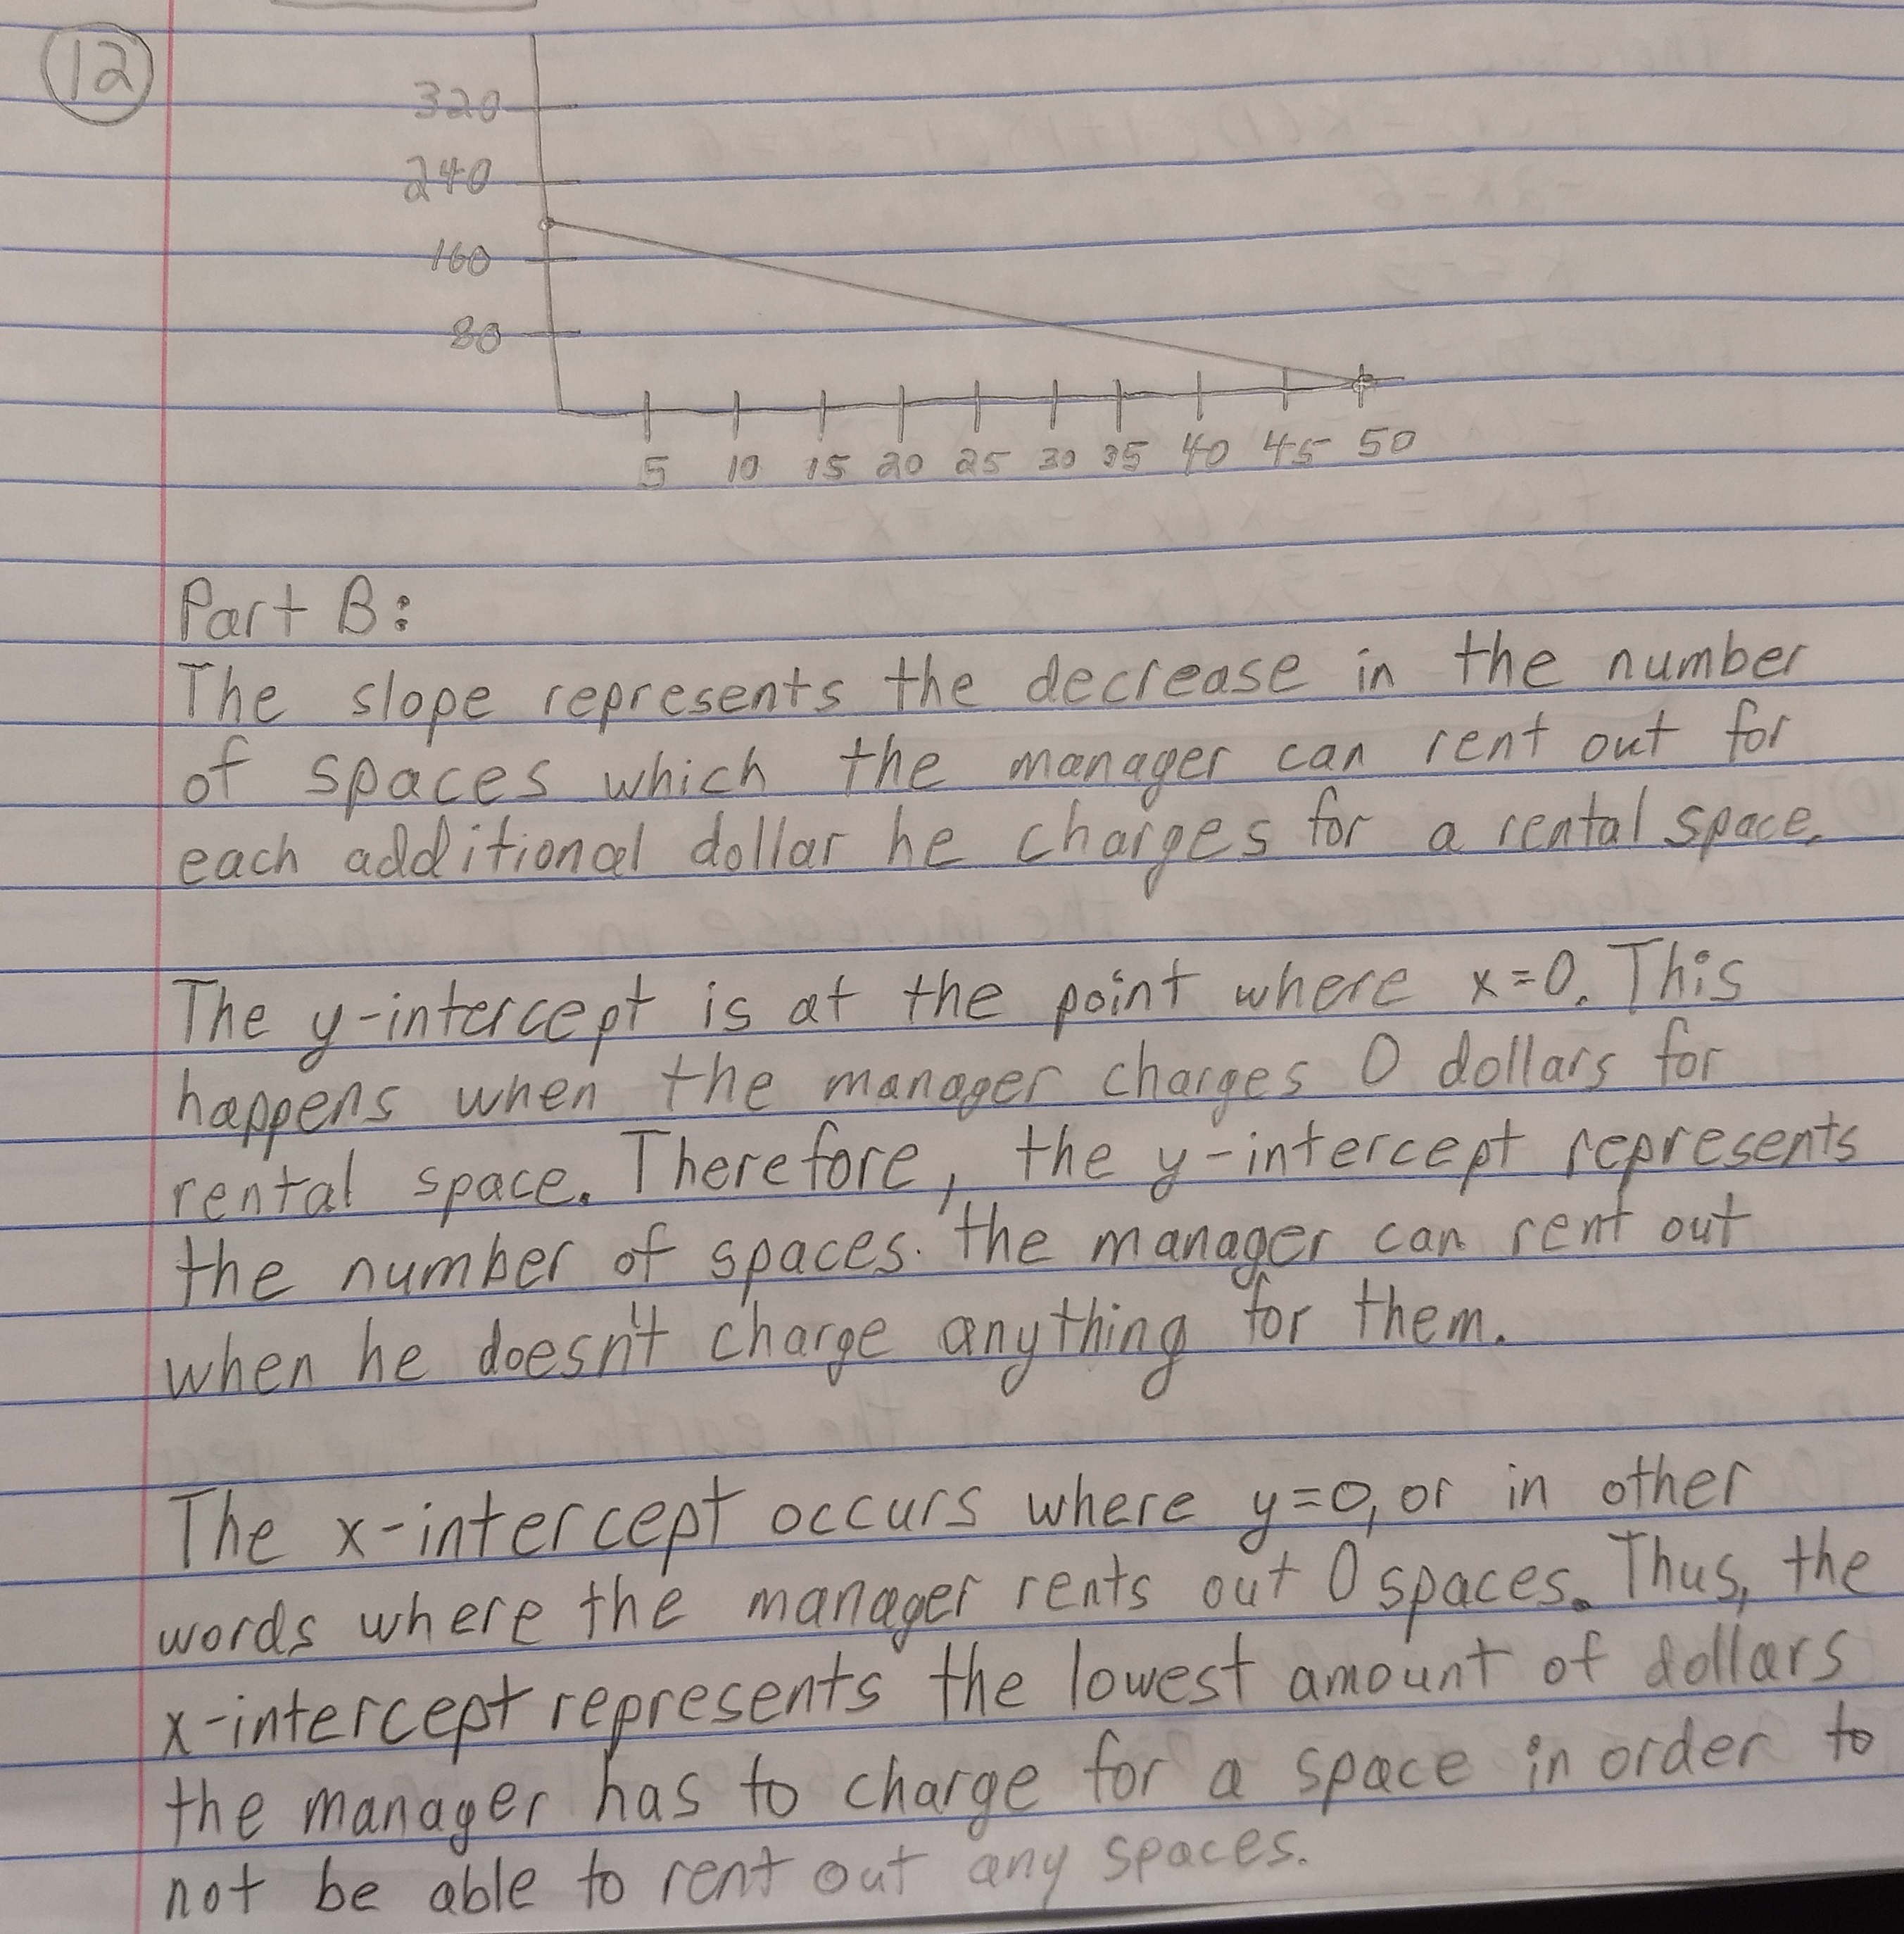 12
320
240
160
80
5 10 15 20 25 30 35 40 45 50
Part B:
The slope represents the decrease in the number
of spaces which the manager can rent out for
each additional dollar he charges for a rental space.
The y-intercept is at the point where x=0. This
happens when the manager charges 0 dollars for
rental space. Therefore, the y-intercept represents
the number of spaces the manager can rent out
when he doesn't charge anything for them.
The x-intercept occurs where y=0, or in other
words where the manager rents out 0 spaces. Thus, the
x-intercept represents the lowest amount of dollars
the manager has to charge for a space in order to
not be able to rent out any spaces.